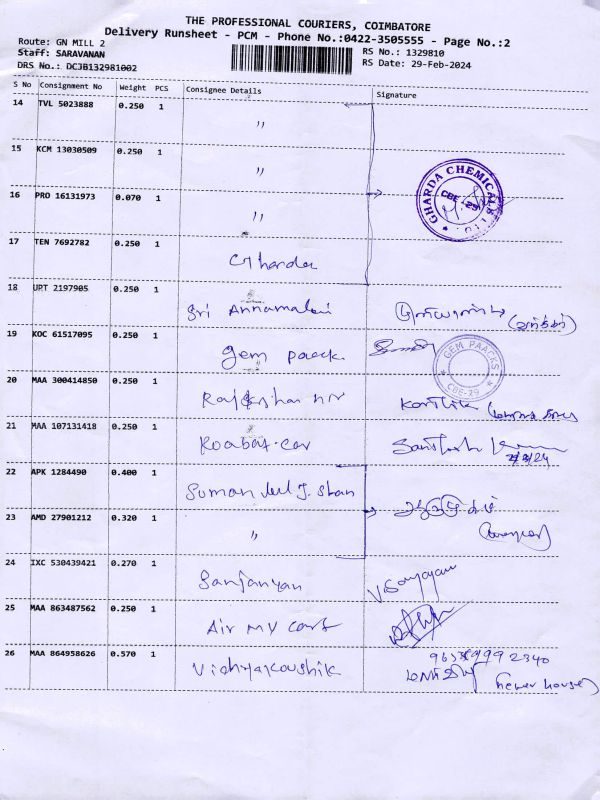 THE PROFESSIONAL COURIERS, COIMBATORE
Delivery Runsheet - PCM - Phone No.:0422-3505555 - Page No.:2
Route: GN MILL 2
Staff: SARAVANAN
DRS No.: DCJB132981002
RS No.: 1329810
RS Date: 29-Feb-2024
S No Consignment No Weight PCS Consignee Details Signature
14 TVL 5023888 0.250 1 "
15 KCM 13030509 0.250 1 "
GHARDA CHEMICALS LTD. CBE-29
16 PRO 16131973 0.070 1 "
17 TEN 7692782 0.250 1 Gharda
18 URT 2197905 0.250 1 Sri Annamalai
19 KOC 61517095 0.250 1 Gem paack
GEM PAACKS CBE-29
20 MAA 300414850 0.250 1 Karthik
21 MAA 107131418 0.250 1 Santhosh
22 APK 1284490 0.400 1 Suman
23 AMD 27901212 0.320 1 "
24 IXC 530439421 0.270 1 Sanjanyan
25 MAA 863487562 0.250 1 Air my
26 MAA 864958626 0.570 1 Vidhyakoushik